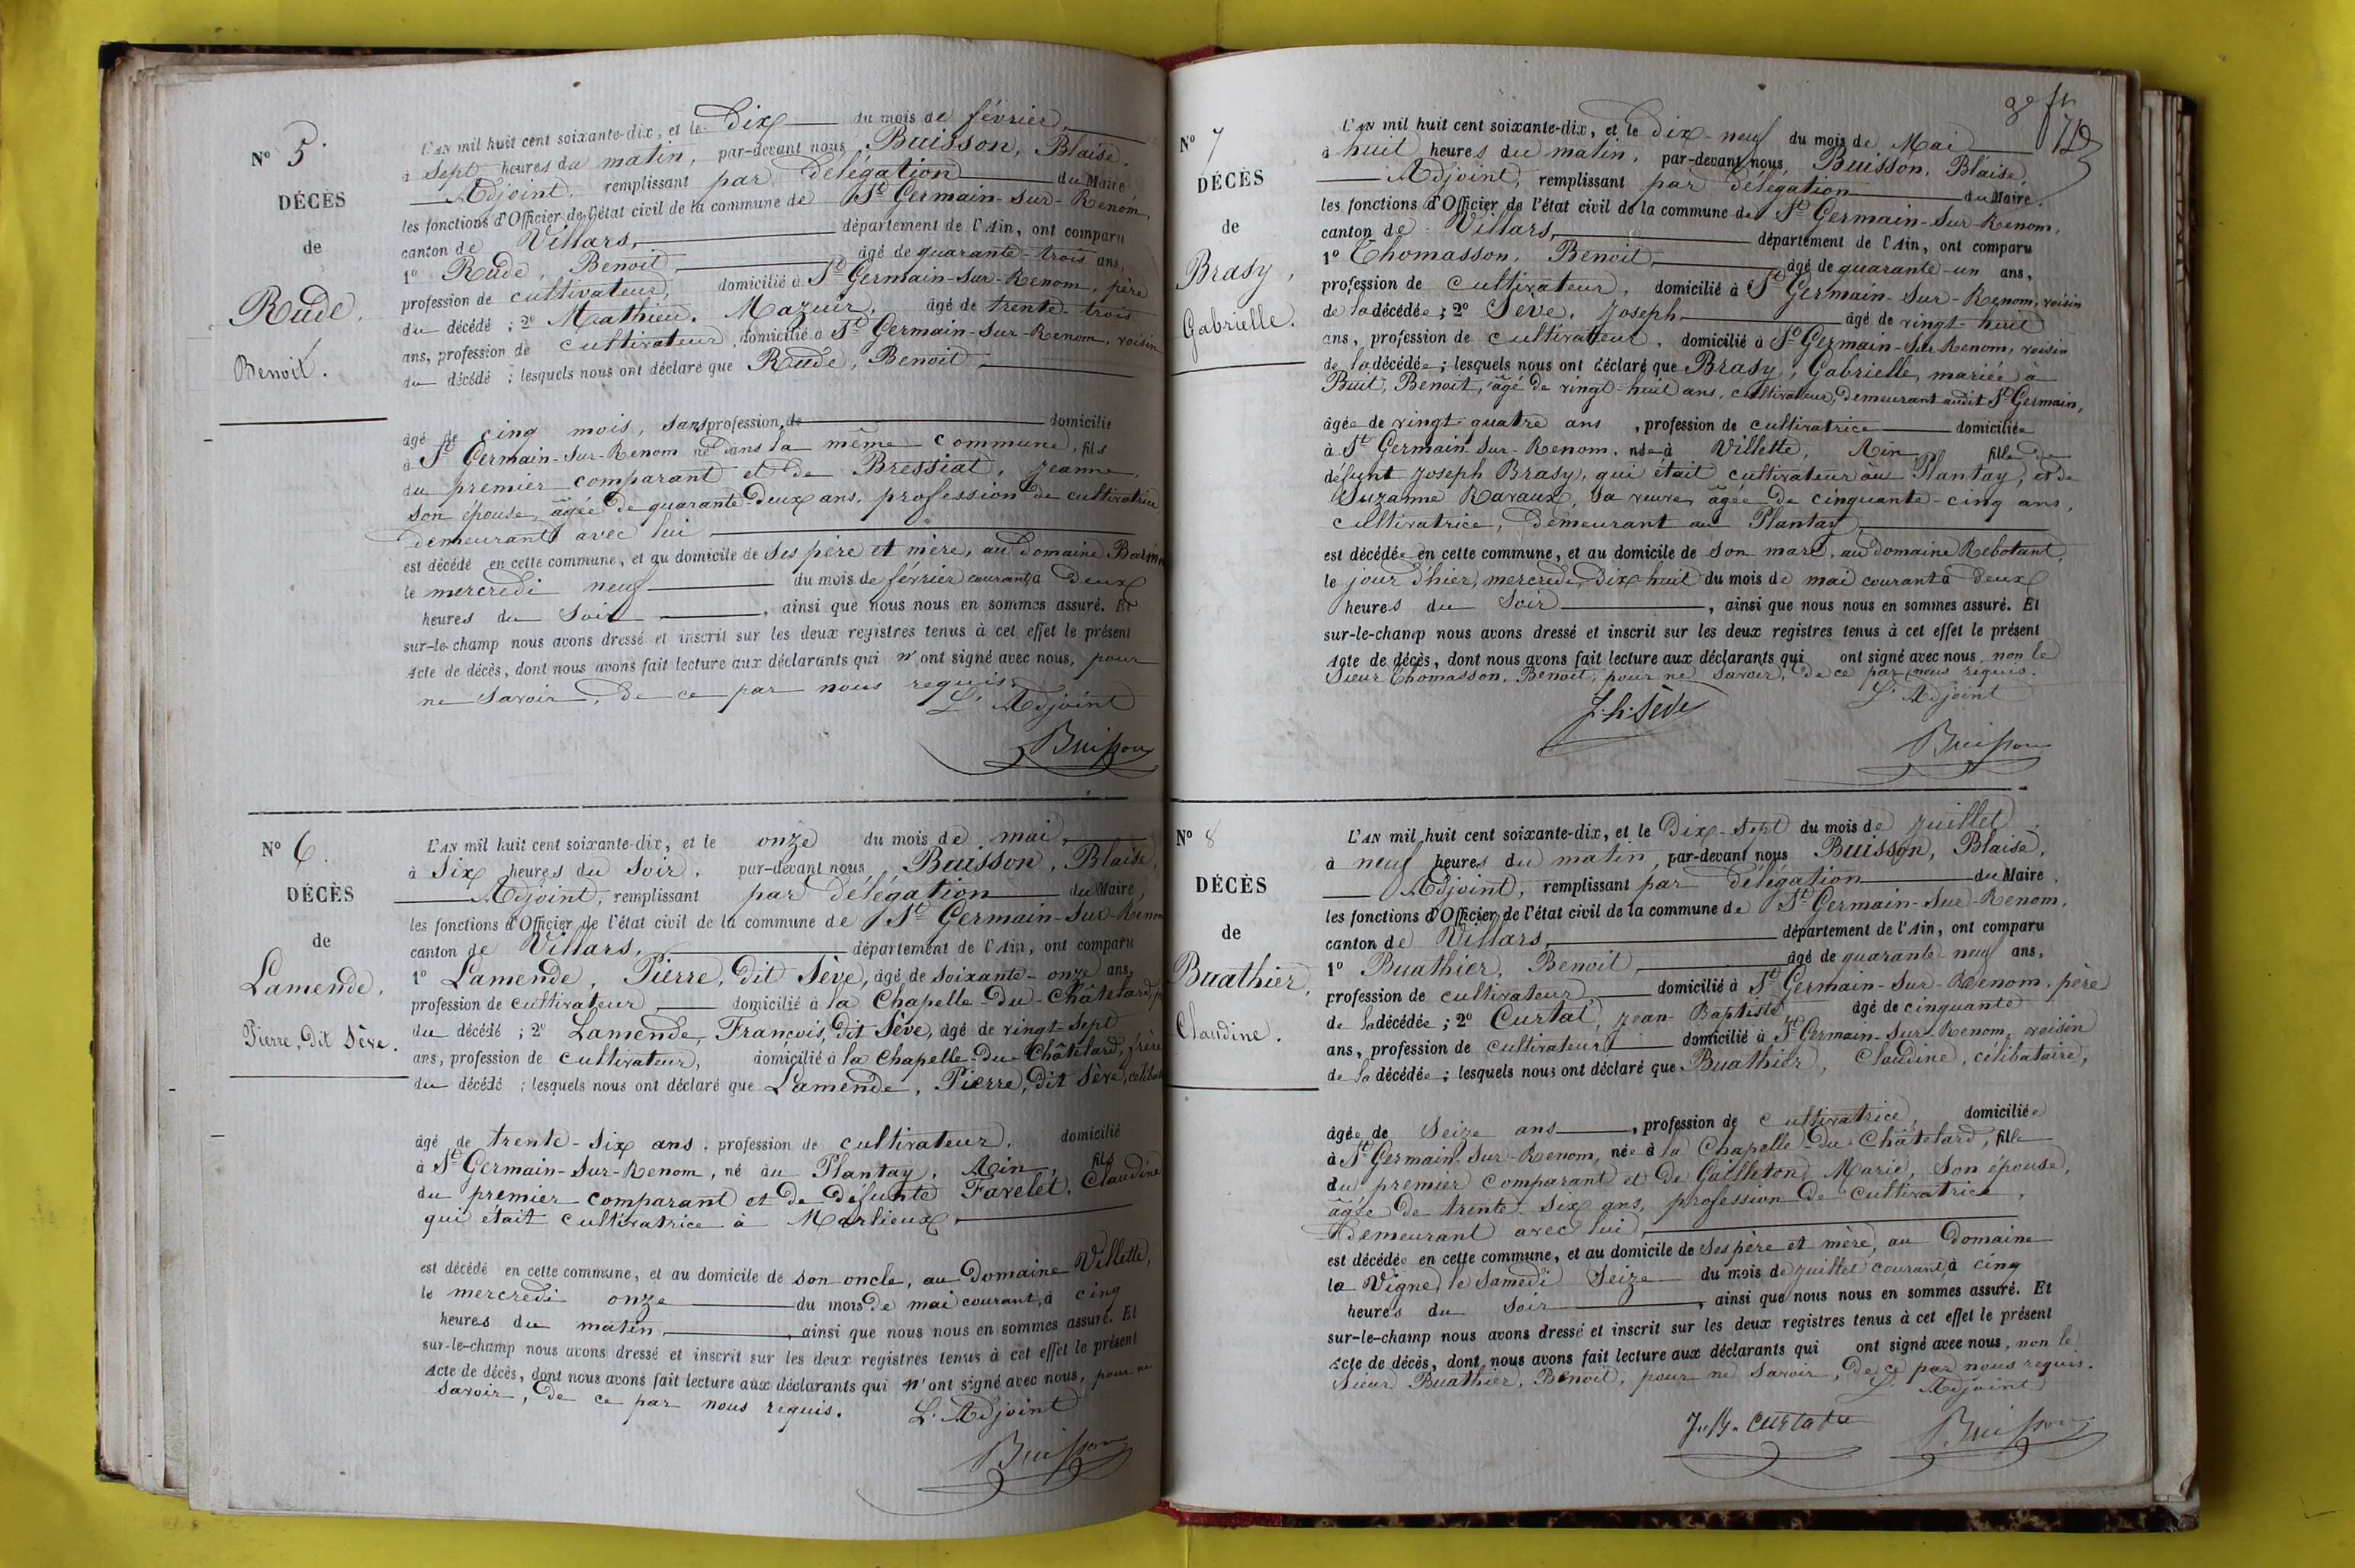 N° 5.
DÉCÈS
de
Rude.
Benoit.
L'AN mil huit cent soixante-dix, et le Dix du mois de février,
à Sept heures du matin, par-devant nous Buisson, Blaise,
Adjoint, remplissant par délégation du Maire
les fonctions d'Officier de l'état civil de la commune de St Germain-Sur-Renom,
canton de Villars, département de l'Ain, ont comparu
1° Rude, Benoit, âgé de quarante-trois ans,
profession de cultivateur, domicilié à St Germain-Sur-Renom, père
du décédé ; 2° Mathieu. Mazuir, âgé de trente-trois
ans, profession de cultivateur, domicilié à St Germain-Sur-Renom, voisin
du décédé ; lesquels nous ont déclaré que Rude, Benoit,
âgé de cinq mois, sans profession, de domicilié
à St Germain-Sur-Renom né dans la même commune, fils
du premier comparant et de Bressiat, Jeanne,
son épouse, âgée de quarante-deux ans, profession de cultivatrice,
demeurant avec lui
est décédé en cette commune, et au domicile de ses père et mère, au Domaine
le mercredi neuf du mois de février courant, à deux
heures du Soir, ainsi que nous nous en sommes assuré. Et
sur-le-champ nous avons dressé et inscrit sur les deux registres tenus à cet effet le présent
Acte de décès, dont nous avons fait lecture aux déclarants qui n'ont signé avec nous, pour
ne savoir, de ce par nous requis.
L'Adjoint
Buisson
N° 6.
DÉCÈS
de
Lamende,
Pierre, dit Sève.
L'AN mil huit cent soixante-dix, et le onze du mois de mai,
à Six heures du Soir, par-devant nous Buisson, Blaise,
Adjoint, remplissant par délégation du Maire,
les fonctions d'Officier de l'état civil de la commune de St Germain-Sur-Renom
canton de Villars, département de l'Ain, ont comparu
1° Lamende, Pierre, dit Sève, âgé de soixante-onze ans,
profession de cultivateur, domicilié à la Chapelle-Du-Châtelard,
du décédé ; 2° Lamende, François, dit Sève, âgé de vingt-sept
ans, profession de cultivateur, domicilié à la Chapelle-Du-Châtelard, frère
du décédé ; lesquels nous ont déclaré que Lamende, Pierre, dit Sève,
âgé de trente-six ans, profession de cultivateur, domicilié
à St Germain-Sur-Renom, né au Plantay, Ain, fils
du premier comparant et de défunte Favelet, Claudine
qui était cultivatrice à Marlieux,
est décédé en cette commune, et au domicile de son oncle, au Domaine Villette,
le mercredi onze du mois de mai courant, à cinq
heures du matin, ainsi que nous nous en sommes assuré. Et
sur-le-champ nous avons dressé et inscrit sur les deux registres tenus à cet effet le présent
Acte de décès, dont nous avons fait lecture aux déclarants qui n'ont signé avec nous, pour ne
savoir, de ce par nous requis.
L'Adjoint
Buisson
N° 7
DÉCÈS
de
Brasy,
Gabrielle.
L'AN mil huit cent soixante-dix, et le dix-neuf du mois de Mai
à huit heures du matin, par-devant nous, Buisson, Blaise,
Adjoint, remplissant par délégation du Maire,
les fonctions d'Officier de l'état civil de la commune de St Germain-Sur-Renom,
canton de Villars, département de l'Ain, ont comparu
1° Thomasson, Benoit, âgé de quarante-un ans,
profession de cultivateur, domicilié à St Germain-Sur-Renom, voisin
de la décédée ; 2° Sève, Joseph âgé de vingt-huit
ans, profession de cultivateur, domicilié à St Germain-Sur-Renom, voisin
de la décédée ; lesquels nous ont déclaré que Brasy, Gabrielle, mariée à
Buit, Benoit, âgé de vingt-huit ans, cultivateur, demeurant audit St Germain,
âgée de vingt-quatre ans, profession de cultivatrice domiciliée
à St Germain-Sur-Renom, née à Villette, Ain, fille de
défunt Joseph Brasy, qui était cultivateur au Plantay, et de
Suzanne Ravaux, sa veuve, âgée de cinquante-cinq ans,
cultivatrice, demeurant au Plantay,
est décédée en cette commune, et au domicile de son mari, au Domaine Rebotant,
le jour d'hier, mercredi, dix-huit du mois de mai courant à deux
heures du Soir, ainsi que nous nous en sommes assuré. Et
sur-le-champ nous avons dressé et inscrit sur les deux registres tenus à cet effet le présent
Acte de décès, dont nous avons fait lecture aux déclarants qui ont signé avec nous, non le
Sieur Thomasson, Benoit, pour ne savoir, de ce par nous requis.
L'Adjoint
J.h. Sève
Buisson
N° 8
DÉCÈS
de
Buathier,
Claudine.
L'AN mil huit cent soixante-dix, et le Dix-Sept du mois de Juillet
à neuf heures du matin, par-devant nous Buisson, Blaise,
Adjoint, remplissant par délégation du Maire,
les fonctions d'Officier de l'état civil de la commune de St Germain-Sur-Renom,
canton de Villars, département de l'Ain, ont comparu
1° Buathier, Benoit, âgé de quarante-neuf ans,
profession de cultivateur, domicilié à St Germain-Sur-Renom, père
de la décédée ; 2° Curtat, Jean-Baptiste, âgé de cinquante
ans, profession de cultivateur, domicilié à St Germain-Sur-Renom, voisin
de la décédée ; lesquels nous ont déclaré que Buathier, Claudine, célibataire,
âgée de Seize ans, profession de cultivatrice, domiciliée
à St Germain-Sur-Renom, née à la Chapelle-Du-Châtelard, fille
du premier comparant et de Gailleton, Marie, son épouse,
âgée de trente-six ans, profession de cultivatrice,
demeurant avec lui,
est décédée en cette commune, et au domicile de ses père et mère, au Domaine
la Vigne, le Samedi Seize du mois de juillet courant, à cinq
heures du Soir, ainsi que nous nous en sommes assuré. Et
sur-le-champ nous avons dressé et inscrit sur les deux registres tenus à cet effet le présent
Acte de décès, dont nous avons fait lecture aux déclarants qui ont signé avec nous, non le
Sieur Buathier, Benoit, pour ne savoir, de ce par nous requis.
L'Adjoint
Curtat
Buisson